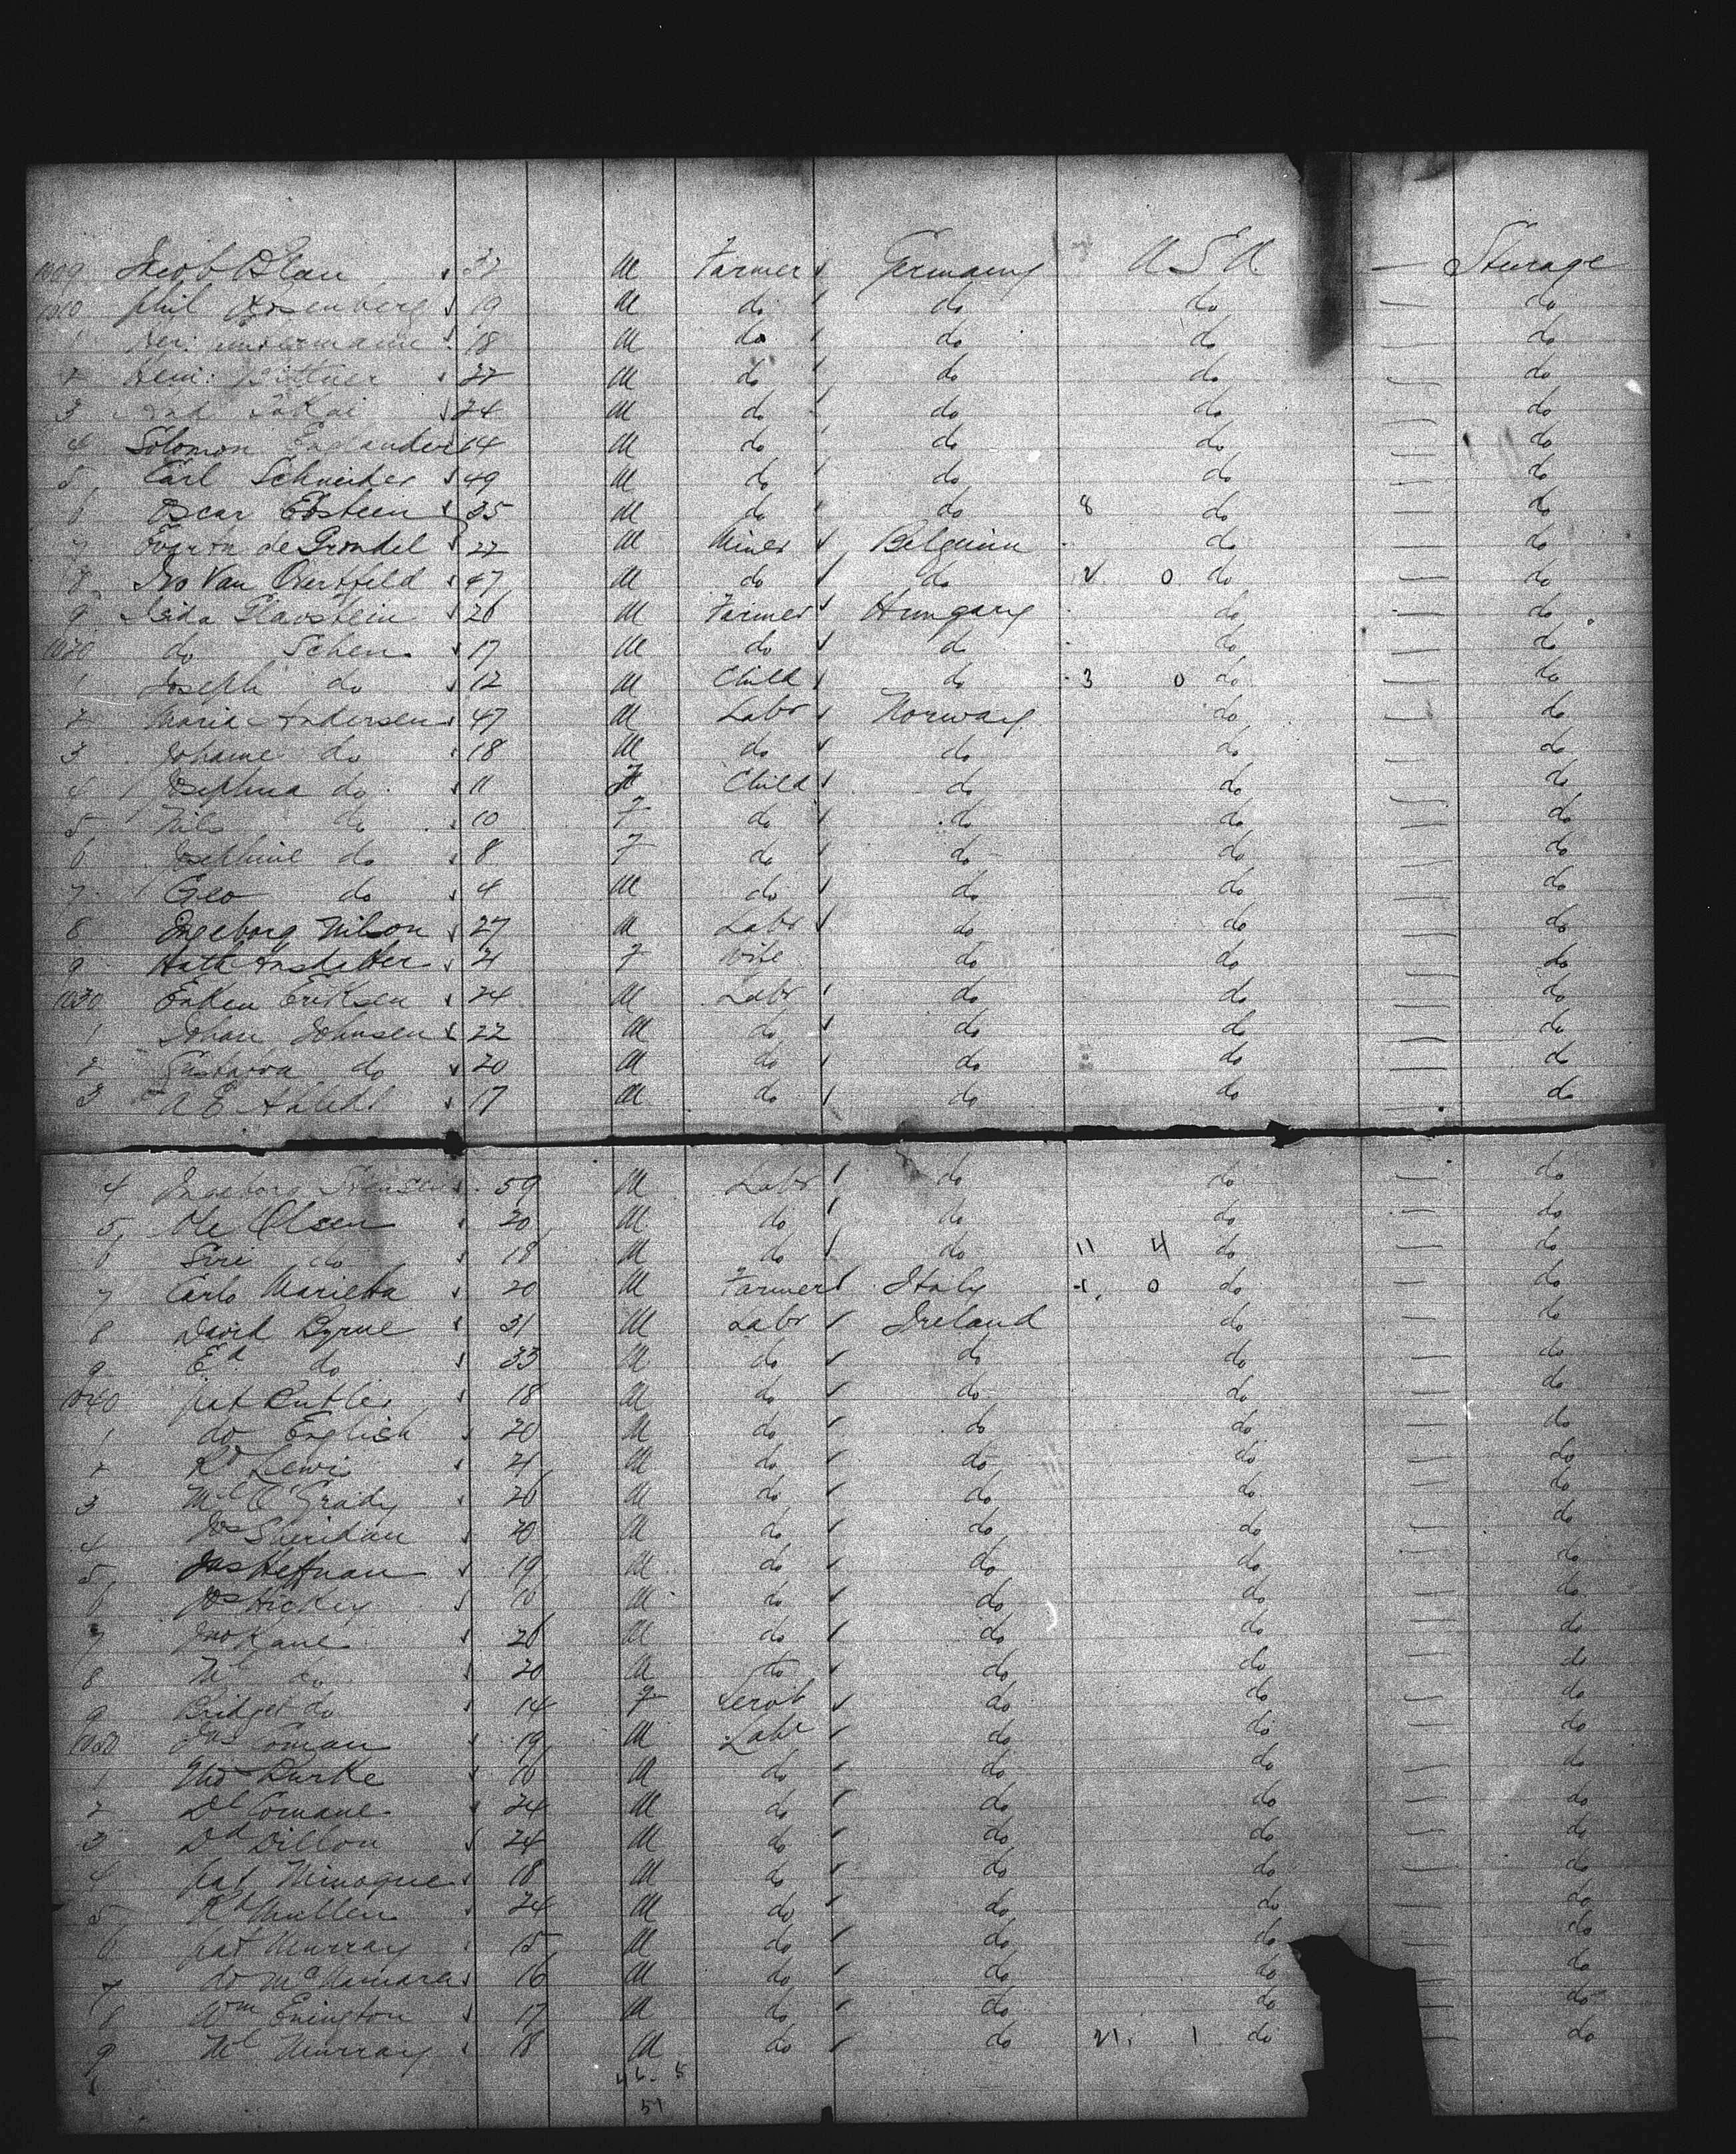 1009 Jacob Blau 32 M Farmer Germany U S A — Steerage
1010 Phil Rosenberg 19 M do do do — do
1 18 M do do do — do
2 Hein: Bittner 22 M do do do — do
3 24 M do do do — do
4 Solomon Englander 14 M do do do — do
5 Carl Schneider 49 M do do do — do
6 Oscar Ebstein 35 M do do 8 do — do
7 de Grondel 22 M Miner Belgium do — do
8 Ivo Van 47 M do do 2 0 do — do
9 26 M Farmer Hungary do — do
1020 do 17 M do do do — do
1 Joseph do 12 M Child do 3 0 do — do
2 Maria Andersen 47 M Labr Norway do — do
3 Johanne do 18 M do do do — do
4 do 11 F Child do do — do
5 Nils do 10 F do do do — do
6 Josephine do 8 F do do do — do
7 Geo do 4 M do do do — do
8 Ingeborg Nilson 27 M Labr do do — do
9 21 F Wife do do — do
1030 Eriksen 24 M Labr do do — do
1 Johan Johnsen 22 M do do do — do
2 Gustava do 20 M do do do — do
3 A E 17 M do do do — do
4 Ingeborg 59 M Labr do do — do
5 Ole Olsen 20 M do do do — do
6 Siri do 18 M do do 11 4 do — do
7 Carlo Marietta 20 M Farmer Italy 1 0 do — do
8 David Byrne 31 M Labr Ireland do — do
9 Ed do 33 M do do do — do
1040 Pat Butler 18 M do do do — do
1 do English 20 M do do do — do
2 Rd Lewis 21 M do do do — do
3 Ml O'Grady 20 M do do do — do
4 Jos Sheridan 20 M do do do — do
5 Jas Heffnan 19 M do do do — do
6 Jos Hickey M do do do — do
7 Jno Kane M do do do — do
8 Ml do 20 M do do do — do
9 Bridget do 14 F Servt do do — do
1050 Jas Coman 19 M Labr do do — do
1 Thos Burke M do do do — do
2 Dl Comane 24 M do do do — do
3 Dd Dillon 24 M do do do — do
4 Pat Minogue 18 M do do do — do
5 Rd Mullen 24 M do do do — do
6 Pat Murray 15 M do do do — do
7 do McNamara 16 M do do do — do
8 Wm Enington 17 M do do do — do
9 Ml Murray 18 M do do 21 1 do — do
46 5
51